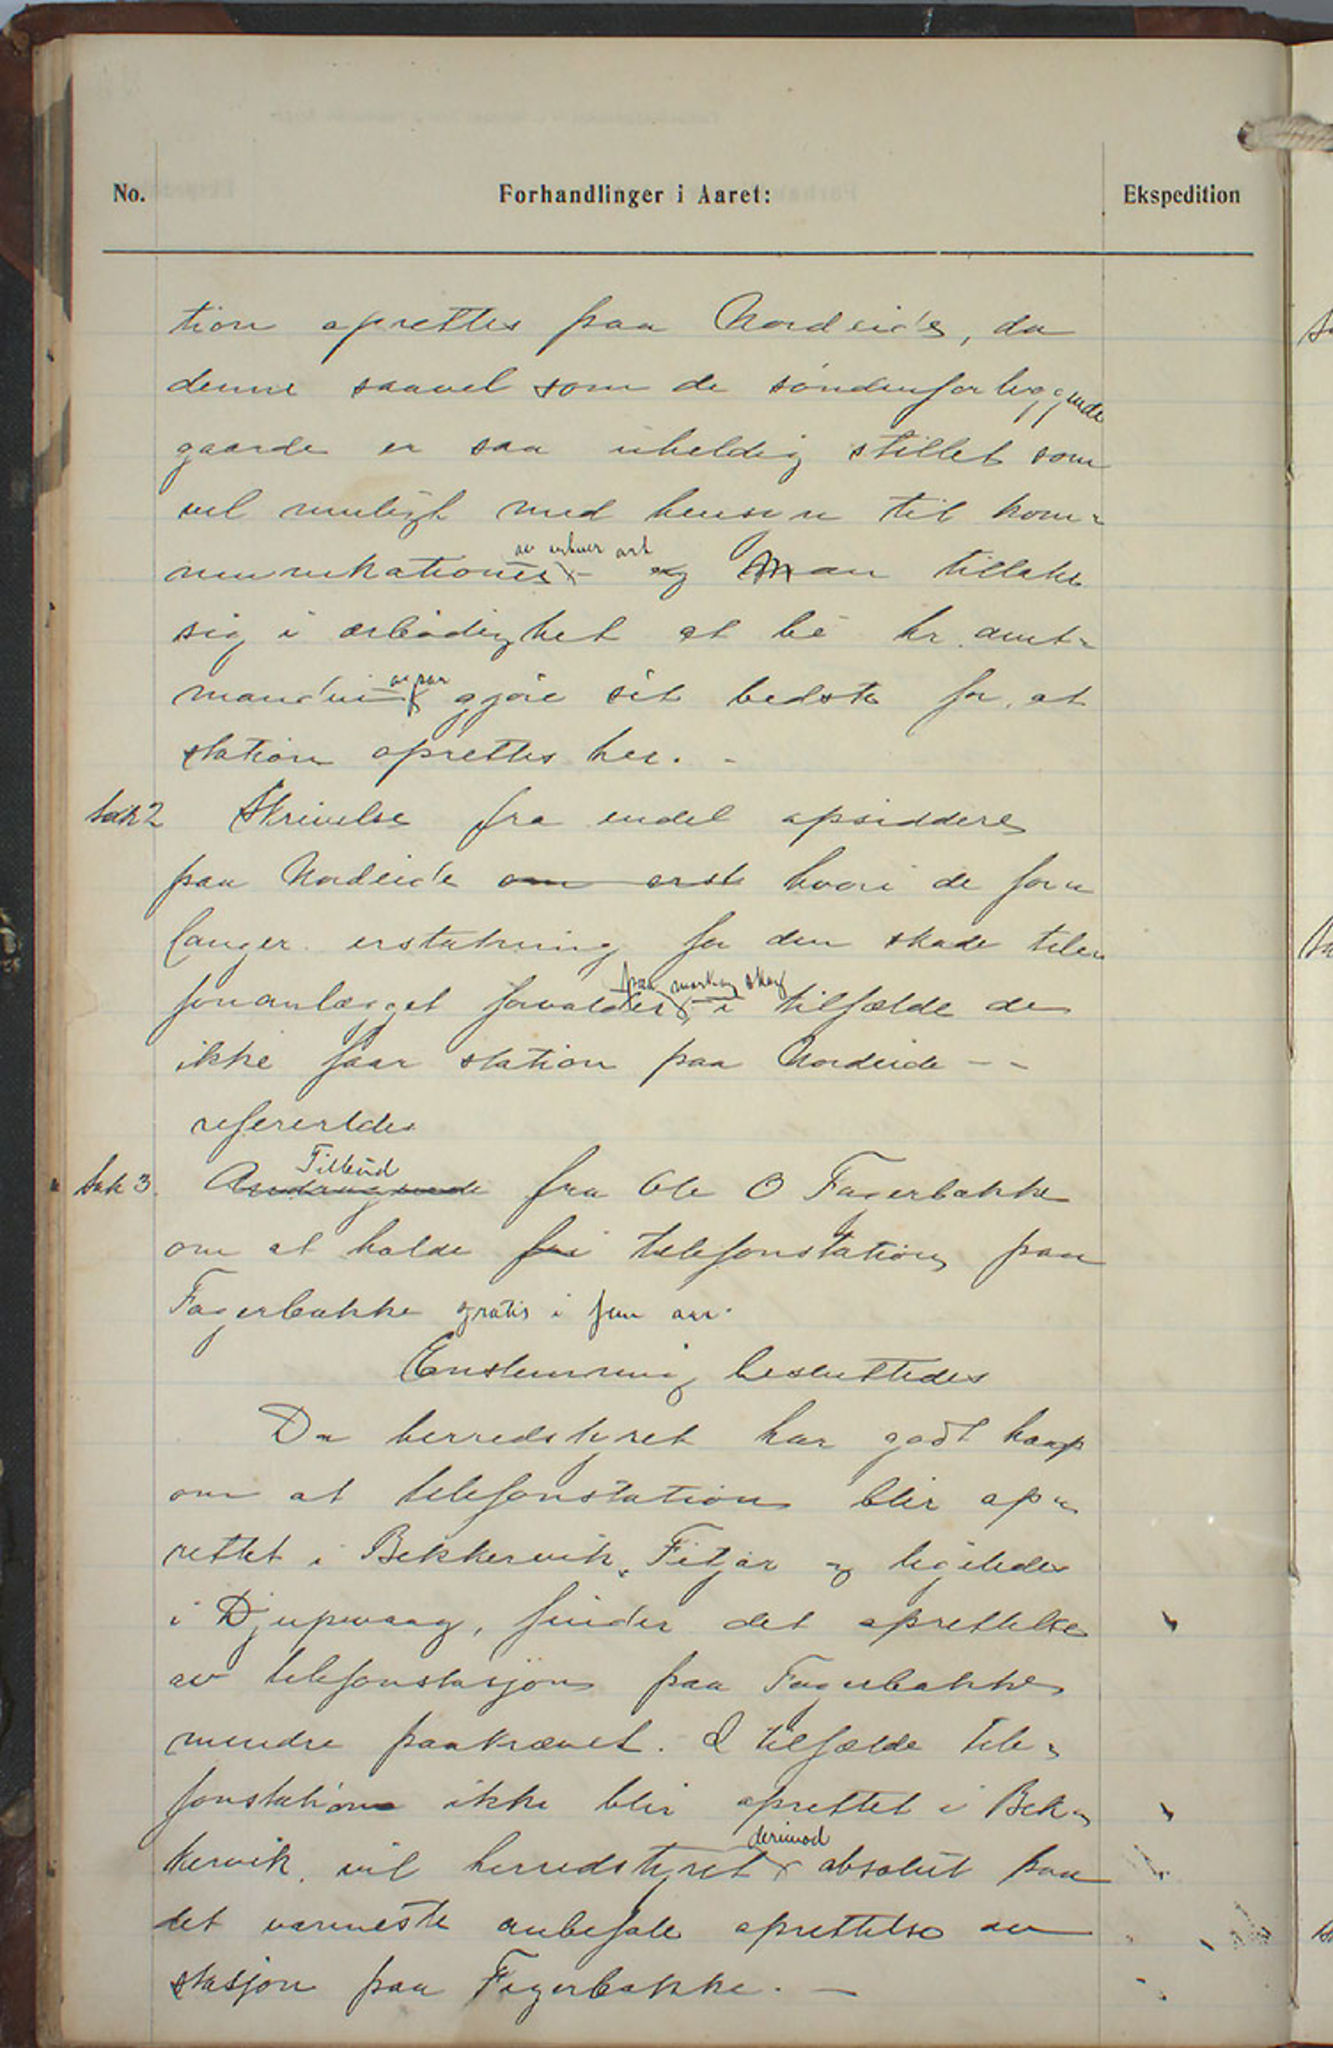 No. Forhandlinger i Aaret: Ekspedition
tion oprettes paa Nordeide, da
denne saavel som de søndenforliggende
gaarde er saa uheldig stillet som
vel muligt med hensyn til kom-
munikationer av enhver art og Man tillater
sig i ærbødighet at be hr. amt-
manden gjøre sit bedste for at
station oprettes her. -
Sak 2 Skrivelse fra endel opsiddere
paa Nordeide om erst hvori de for-
langer erstatning for den skade tele-
fonanlægget forvolder paa mark og skog, i tilfælde de
ikke faar station paa Nordeide - -
refereredes
Sak 3. Andragende Tilbud fra Ole O Fagerbakke
om at holde fri telefonstation paa
Fagerbakke gratis i fem aar.
Enstemmig besluttedes
Da herredstyret har godt haap
om at telefonstation blir op-
rettet i Bekkervik, Fitjar og ligeledes
i Djupvaag, finder det oprettelse
av telefonstasjon paa Fagerbakke
mindre paakrævet. I tilfælde tele-
fonstation ikke blir oprettet i Bek-
kervik, vil herredstyret derimod absolut paa
det varmeste anbefale oprettelse av
stasjon paa Fagerbakke. -